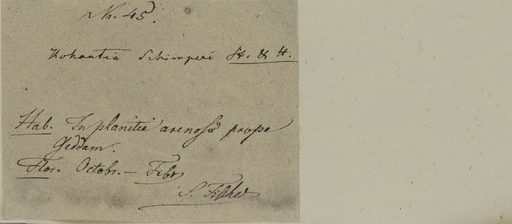 Nr. 45.
Kohautia Schimperi H. & H.
Hab. In planitie arenosâ prope
Geddam.
Flor. Octobr. — Febr.
S. Fischer